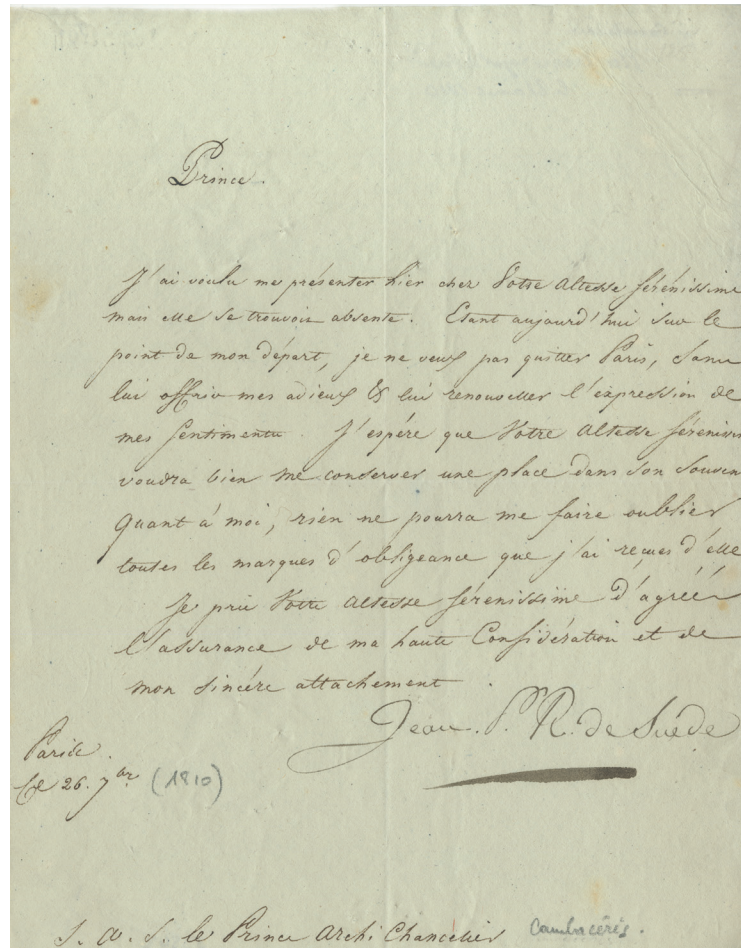 Prince.
J'ai voulu me présenter hier chez Votre Altesse Sérénissime
mais elle se trouvoit absente. Etant aujourd'hui sur le
point de mon départ, je ne veux pas quitter Paris, sans
lui offrir mes adieux & lui renouveller l'expression de
mes sentiments. J'espère que Votre Altesse Séréniss
voudra bien me conserver une place dans son souven
Quant à moi, rien ne pourra me faire oublier
toutes les marques d'obligeance que j'ai reçues d'elle
Je prie Votre Altesse Sérénissime d'agréér
l'assurance de ma haute Considération et de
mon sincére attachement.
Jean. P. R. de Suède
Paris.
Ce 26. 7bre (1810)
S. A. S. le Prince Archi Chancelier Cambacérès.